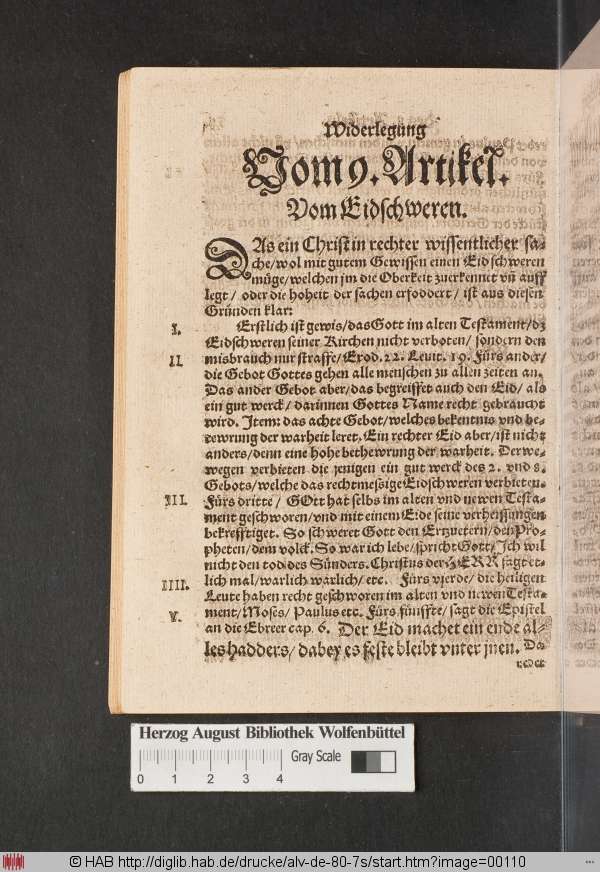 Widerlegung
Vom 9. Artikel.
Vom Eidschweren.
DAs ein Christ in rechter wissentlicher sa-
che/wol mit gutem Gewissen einen Eid schweren
müge/welchen jm die Oberkeit zuerkennet vñ auff
legt/ oder die hoheit der sachen erfoddert/ ist aus diesen
Gründen klar:
I. Erstlich ist gewis/das Gott im alten Testament/dz
Eidschweren seiner Kirchen nicht verboten/ sondern den
II. misbrauch nur straffe/ Exod. 22. Leuit. 19. Fürs ander/
die Gebot Gottes gehen alle menschen zu allen zeiten an.
Das ander Gebot aber/das begreiffet auch den Eid/ als
ein gut werck/ darinnen Gottes Name recht gebraucht
wird. Item: das achte Gebot/welches bekentnis vnd be-
tewrung der warheit leret, Ein rechter Eid aber/ist nicht
anders/denn eine hohe bethewrung der warheit. Derwe-
wegen verbieten die jenigen ein gut werck des 2. vnd 8.
Gebots/welche das rechtmeßige Eidschweren verbieten.
III. Fürs dritte/ GOtt hat selbs im alten vnd newen Testa-
ment geschworen/vnd mit einem Eide seine verheissungen
bekrefftiget. So schweret Gott den Ertzuetern/den Pro-
pheten/dem volck. So war ich lebe/spricht Gott/ Ich wil
nicht den tod des Sünders. Christus der HERR sagt et-
IIII. lich mal/warlich warlich/ etc. Fürs vierde/ die heiligen
Leute haben recht geschworen im alten vnd newen Testa-
V. ment/Moses/ Paulus etc. Fürs fünffte/ sagt die Epistel
an die Ebreer cap. 6. Der Eid machet ein ende al-
les hadders/ dabey es feste bleibt vnter jnen. Da
Herzog August Bibliothek Wolfenbüttel
Gray Scale
0 1 2 3 4
© HAB http://diglib.hab.de/drucke/alv-de-80-7s/start.htm?image=00110